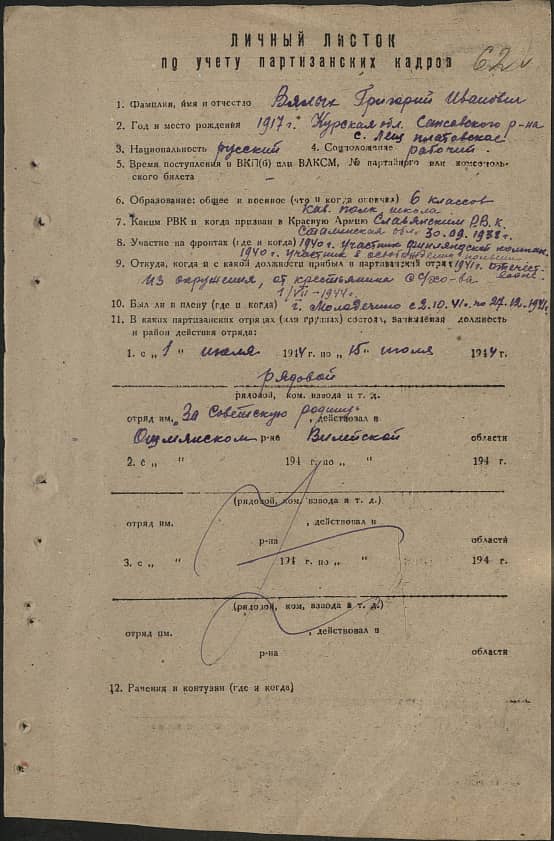 ЛИЧНЫЙ ЛИСТОК
по учету партизанских кадров
62
1. Фамилия, имя и отчество Вялых Григорий Иванович
2. Год и место рождения 1917 г. Курская обл. р-на
с. Лещ плотовское
3. Национальность русский 4. Соцположение рабочий
5. Время поступления в ВКП(б) или ВЛКСМ, № партийного или комсомоль-
ского билета —
6. Образование: общее и военное (что и когда окончил) 6 классов
Кав. полк. школа
7. Каким РВК и когда призван в Красную Армию Славянским Р.В.К.
Сталинская обл. 30.09.1938 г.
8. Участие на фронтах (где и когда) 1940 г. участник финляндской компан.
1940 г. участник в освобождении
9. Откуда, когда и с какой должности прибыл в партизанский отряд 1941 г. отечест-
Из окружения, от крестьянина с/хо-ва
1/VII-1944 г.
10. Был ли в плену (где и когда) г. Молодечино с 2.10.41 г. по 27.12.1941 г.
11. В каких партизанских отрядах (или группах) состоял, занимаемая должность
и район действия отряда:
1. с „1" июля 1944 г. по „15" июля 1944 г.
рядовой
рядовой, ком. взвода и т. д.
отряд им. "За Советскую родину", действовал в
Ошмянском р-не Вилейской области
2. с „ " 194 г. по „ " 194 г.
(рядовой, ком. взвода и т. д.)
отряд им. , действовал в
р-на области
3. с „ " 194 г. по „ " 194 г.
(рядовой, ком. взвода и т. д.)
отряд им. , действовал в
р-на области
12. Ранения и контузии (где и когда)